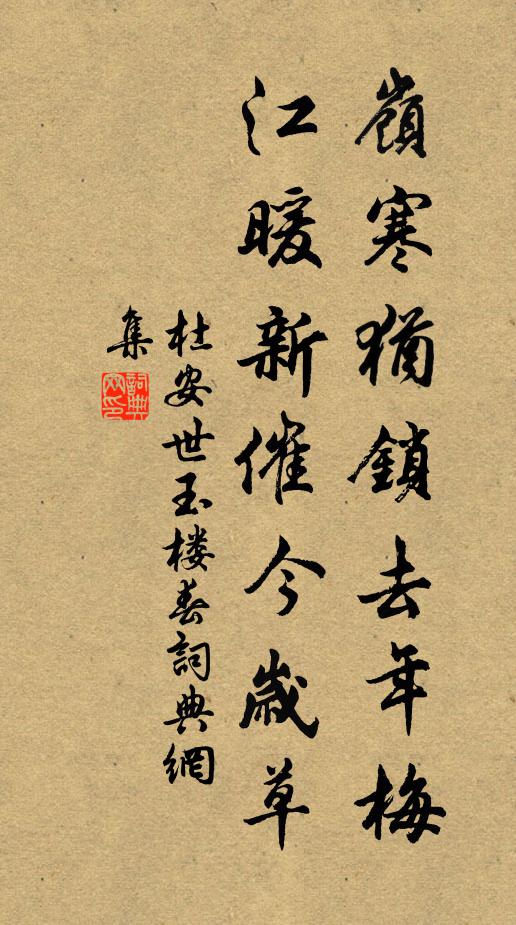 嶺寒猶鎖去年梅
江暖新催今歲草
杜安世玉楼春詞典網
集
詞典網印